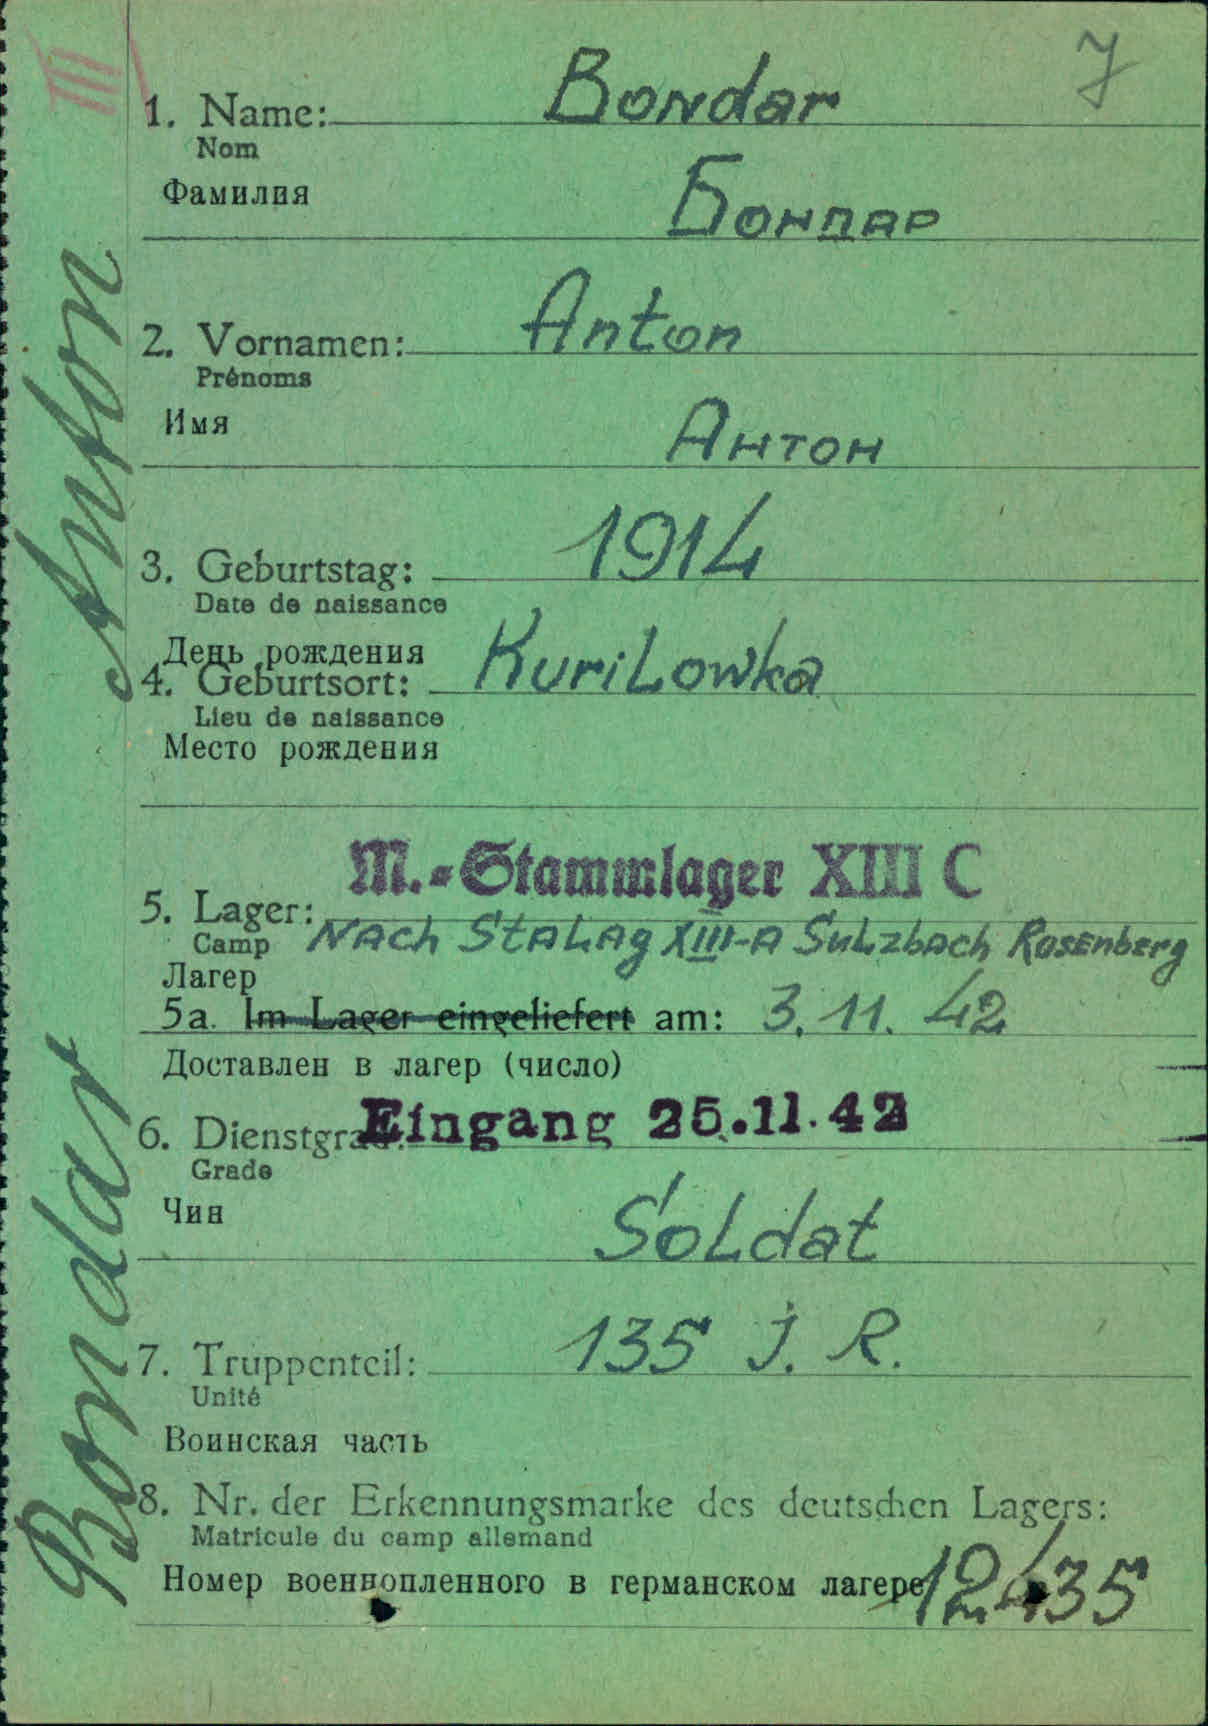 III
7
1. Name: Bondar
Nom
Фамилия
Бондар
2. Vornamen: Anton
Prénoms
Имя
Антон
3. Geburtstag: 1914
Date de naissance
День рождения
4. Geburtsort: Kurilowka
Lieu de naissance
Место рождения
M.-Stammlager XIII C
5. Lager:
Camp Nach Stalag XIII-A Sulzbach Rosenberg
Лагер
5a. Im Lager eingeliefert am: 3.11.42
Доставлен в лагер (число)
Eingang 25.11.42
6. Dienstgrad:
Grade
Чин
Soldat
7. Truppenteil: 135 J. R.
Unité
Воинская часть
8. Nr. der Erkennungsmarke des deutschen Lagers:
Matricule du camp allemand
Номер военнопленного в германском лагере 12435
Bondar Anton